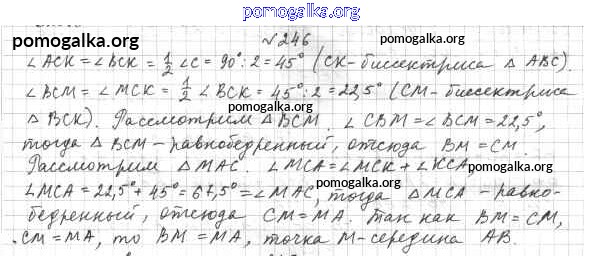 pomogalka.org
№246
pomogalka.org pomogalka.org
∠ACK = ∠BCK = 1/2 ∠C = 90° : 2 = 45° (CK - биссектриса △ ABC).
∠BCM = ∠MCK = 1/2 ∠BCK = 45° : 2 = 22,5° (CM - биссектриса
pomogalka.org
△ BCK). Рассмотрим △ BCM ∠CBM = ∠BCM = 22,5°,
тогда △ BCM - равнобедренный, отсюда BM = CM.
Рассмотрим △ MAC. ∠MCA = ∠MCK + ∠KCA
pomogalka.org
∠MCA = 22,5° + 45° = 67,5° = ∠MAC, тогда △MCA - равно-
pomogalka.org
бедренный, отсюда CM = MA. Так как BM = CM,
CM = MA, то BM = MA, точка M - середина AB.
pomogalka.org